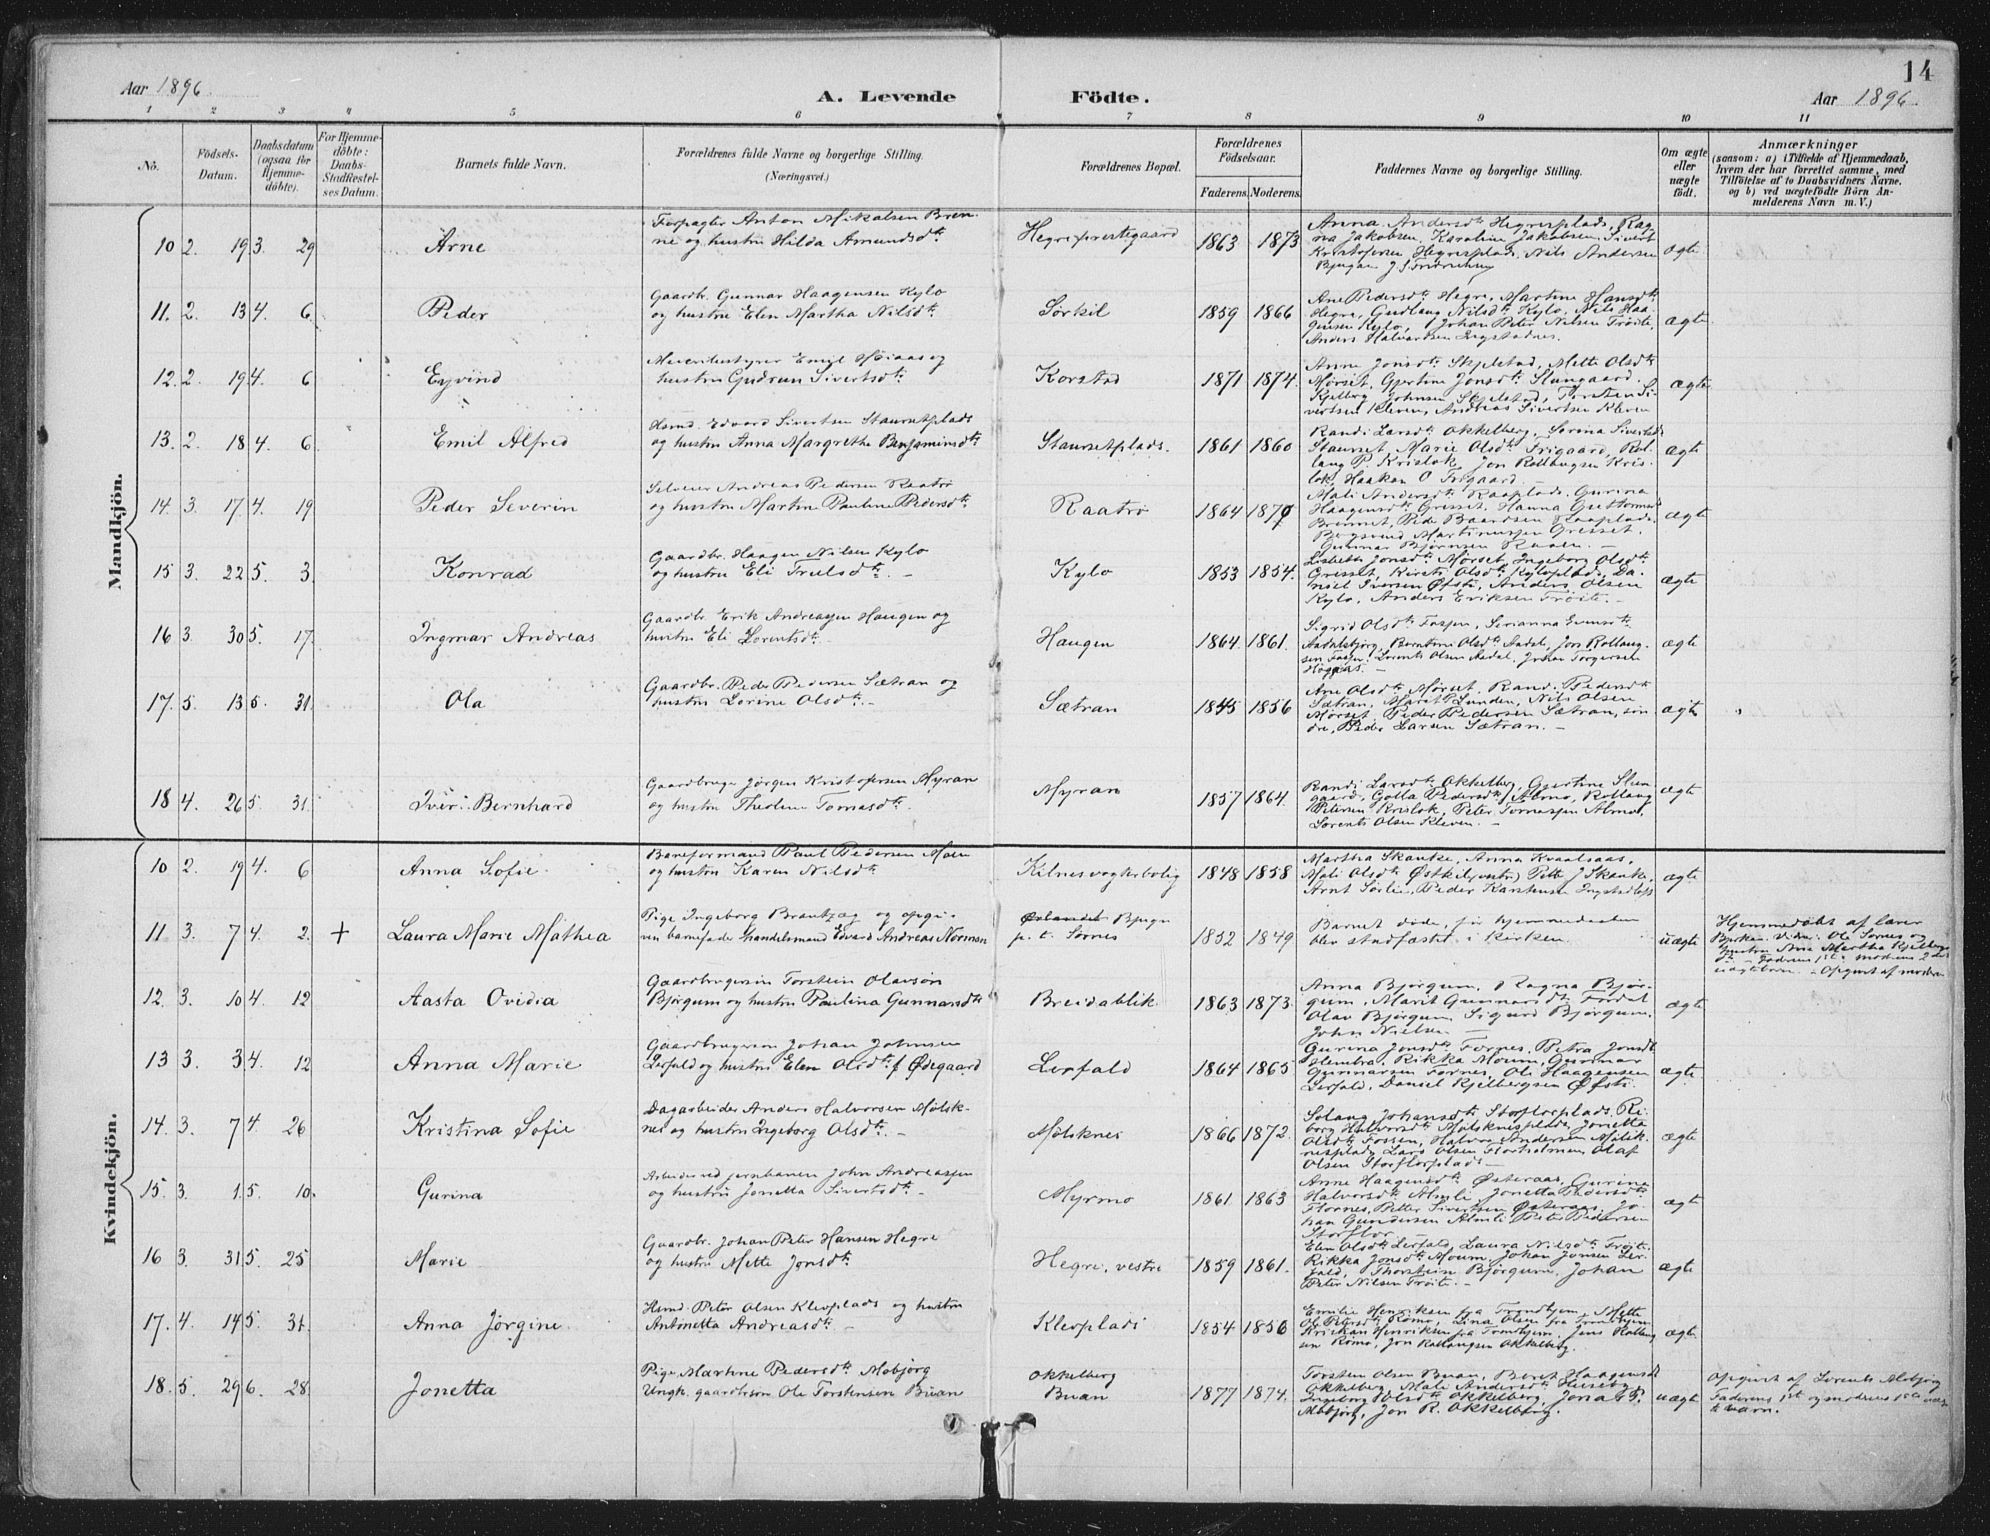 14
Aar 1896.
A. Levende Födte.
Aar 1896.
1 2 3 4 5 6 7 8 9 10 11
No.
Födsels-
Datum.
Daabsdatum
(ogsaa for
Hjemme-
døbte).
For Hjemme-
døbte:
Daabs-
Stadfæstel-
ses Datum.
Barnets fulde Navn.
Forældrenes fulde Navne og borgerlige Stilling.
(Næringsvei.)
Forældrenes Bopæl.
Forældrenes
Födselsaar.
Faderens. Moderens.
Faddernes Navne og borgerlige Stilling.
Om ægte
eller
uægte
födt.
Anmærkninger
(saasom: a) i Tilfælde af Hjemmedaab,
hvem der har forrettet samme, med
Tilföielse af to Daabsvidners Navne.
og b) ved uægtefödte Börn An-
melderens Navn m. V.)
Mandkjön.
10 2. 19 3 29 Arne
Forpagter Anton Mikalsen Bren-
ne og hustru Hilda Amundsdtr.
Hegreprestegaard 1863 1873
Anna Andersdtr Hegresplads, Rag-
na Jakobsen, Karoline Jakobsen, Sivert
Kristofersen Hegresplads, Nils Andersen
ægte
11. 2. 13 4. 6. Peder
Gaardbr. Gunnar Haagensen Kylo
og hustru Elen Martha Nilsdtr.
Sørkil 1859 1866
Ane Pedersdtr Hegre, Martine Hansdtr
Hegre, Gudlaug Nilsdtr Kylo, Nils Haa-
gensen Kylo, Johan Peter Nilsen Trøite,
Anders Halvardsen Ingstadnes.
ægte
12. 2. 19 4. 6 Eyvind
Meieribestyrer Emil Høiaas og
hustru Gudrun Sivertsdtr.
Korstad 1871 1874.
Anne Jonsdtr Skjelstad, Mette Olsdtr
Mørset, Gjertine Jonsdtr Slungaard.
Kjelberg Johnsen Skjelstad, Torsten Si-
vertsen Kleven, Andreas Sivertsen Kleven
ægte
13. 2. 18 4. 6 Emil Alfred
Hsmd. Edvard Sivertsen Staursetplads
og hustru Anna Margrethe Benjaminsdtr.
Staursetplads. 1861 1860
Randi Larsdtr Okkelberg, Sorina Sivertsdtr
Staurset, Marie Olsdtr Trigaard, Rol-
laug P. Krislok, Jon Rollaugsen Kris-
lok, Haakan O Trigaard.
ægte
14. 3. 17 4. 19 Peder Severin
Selveier Andreas Pedersen Raatrø
og hustru Martine Pauline Pedersdtr
Raatrø 1864 1870
Mali Andersdtr Raaplads, Gurina
Haagensdtr Gresset, Hanna Guttormsdtr
Brennet, Peder Baardsen Raaplads,
Bersvend Martinussen Gresset,
Gunnar Bjørnsen Raaen. –
ægte
15 3. 22 5. 3. Konrad
Gaardbr. Haagen Nilsen Kylo
og hustru Eli Trulsdtr. –
Kylo 1853 1854.
Lisbeth Jonsdtr Mørset, Ingeborg Olsdtr
Gresset, Kirsti Olsdtr Kyloplads, Da-
niel Iversen Øfsti, Anders Olsen
Kylo, Anders Eriksen Trøite. –
ægte
16 3. 30 5. 17. Ingmar Andreas
Gaardbr Erik Andreassen Haugen og
hustru Eli Lorentsdtr. –
Haugen 1864 1861.
Sigrid Olsdtr Fosjen, Serianna Evensdtr
Aadalsbjørg, Berntine Olsdtr Aadal, Jon Rollaug-
sen Fosjen, Lorents Olsen Aadal, Johan Torgersen
Høgaas. –
ægte
17. 5. 13 5. 31. Ola
Gaardbr. Peder Pedersen Sætran og
hustru Lorine Olsdtr. –
Sætran 1845 1856
Ane Olsdtr Mørset, Randi Pedersdtr
Sætran, Marit Lunden, Nils Olsen
Mørset, Peder Pedersen Sætran, søn-
dre, Peder Larsen Sætran. –
ægte
18 4. 26 5. 31. Iver Bernhard
Gaardbruger Jørgen Kristofersen Myran
og hustru Theoline Tomasdtr.
Myran 1857 1864.
Randi Larsdtr Okkelberg, Gjertine Slun-
gaard, Golla Pedersdtr Almo, Rollaug
Petersen Krislok, Peter Tomassen Almo,
Lorents Olsen Kleven. –
ægte
Kvindekjön.
10 2. 19 4. 6 Anna Sofie.
Baneformand Paul Pedersen Moen
og hustru Karen Nilsdtr
Kilnesvogterbolig 1848 1858
Martha Skauke, Anna Kvaalsaas,
Mali Olsdtr Østkil (vestre) Petter J Skanke,
Arnt Sørlie, Peder Karstensen Ingstadløs
ægte
11. 3. 7 4. 2. + Laura Marie Mathea
Pige Ingeborg Brantzæg og opgi-
ven barnefader Handelsmand Edvard Andreas Norman
Ørlandet Bjugn
p. t. Sornes 1852 1849
Barnet døde, før hjemmedaaben
blev stadfæstet i kirken.
uægte
Hjemmedøbt af lærer
Bjerkan. Vidner: Ole Sornes og
hustru Ane Martha Kjelbergs-
dtr. – Faderens 1ste modrens 2det
uægtebarn. – Opgivet af modren
12. 3. 10 4. 12 Aasta Ovidia
Gaardbrugersøn Torstein Olavsøn
Bjørgum og hustru Paulina Gunnarsdtr
Breidablik 1863 1873.
Anna Bjørgum, Ragna Bjør-
gum, Marit Gunnarsdtr Fordal
Olav Bjørgum, Sigurd Bjørgum,
John Nielsen –
ægte
13 3. 3 4. 12 Anna Marie
Gaardbrugersøn Johan Johnsen
Lerfald og hustru Elen Olsdtr f Ødegaard
Lerfald 1864 1865
Gurina Jonsdtr Fornes, Petra Jonsdtr
Hembre, Rikka Moum, Gunnar
Gunnarsen Fornes, Ole Haagensen
Lerfald, Daniel Kjelbergsen Øfsti
ægte
14. 3. 7 4. 26 Kristina Sofie
Dagarbeider Anders Halvorsen Mølsk-
nes og hustru Ingeborg Olsdtr. –
Mølsknes 1866 1872.
Solaug Johansdtr Storflorplads, Re-
berg Halvorsdtr Mølsknesplads, Jonetta
Olsdtr Fossen, Halvor Andersen Mølsk-
nesplads, Lars Olsen Florholmen, Olaf
Olsen Storflorplads –
ægte
15. 3. 1. 5. 10. Gurina
Arbeider ved jernbanen John Andreassen
og hustru Jonetta Sivertsdtr. –
Myrmo 1861 1863
Anne Haagensdtr Østeraas, Gurine
Halvorsdtr Almli, Jonetta Pedersdtr
Flornes, Petter Sivertsen Østeraas, Jo-
han Gundersen Almli, Peter Pedersen
Storflor. –
ægte
16 3. 31 5. 25 Marie
Gaardbr. Johan Peter Hansen Hegre
og hustru Mette Jonsdtr.
Hegre, vestre 1859 1861.
Elen Olsdtr Lerfald, Laura Nilsdtr Trøite,
Rikka Jonsdtr Moum, Johan Jonsen Ler-
fald, Thorstein Bjørgum, Johan
Peter Nilsen Trøite. –
ægte
17. 4. 14 5. 31. Anna Jørgine.
Hsmd. Peter Olsen Klevplads og hustru
Antonetta Andreasdtr. –
Klevplads 1854 1856
Emilie Henriksen fra Trondhjem, Mette
Ol. Petersdtr Rømo, Lina Olsen fra Trondhjem
Kristian Henriksen fra Trondhjem, Jens Rollaug-
sen Rømo, Jon Rollaugsen Okkelberg.
ægte
18. 5. 29 6. 28. Jonetta
Pige Martine Pedersdtr Mobjørg
Ungk. gaardbrsøn Ole Torstensen Buan
Okkelberg
Buan 1877 1874.
Torsten Olsen Buan, Beret Haagensdtr
Okkelberg, Mali Andersdtr Huseby,
Ingeborg Olsdtr Okkelberg, Jon
Mobjørg, Jon R. Okkelberg.
uægte
Opgivet af Lorents Mobjørg
Faderens 1ste og modrens 1ste uæg-
te barn.